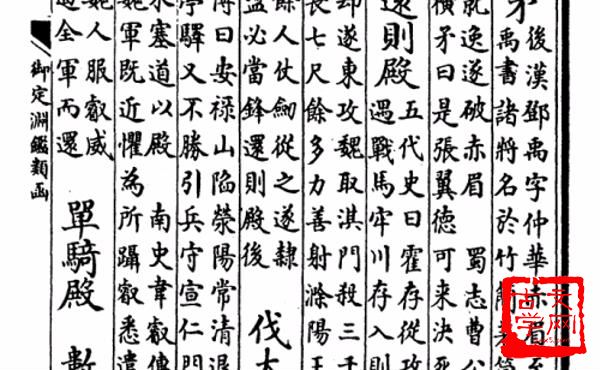 後漢鄧禹字仲華赤眉至
禹書諸將名於竹簡
就逸遂破赤眉　蜀志曹公
橫矛曰是張翼德可來決死
還則殿
五代史曰霍存從攻
遇戰馬牢川存入則
却遂東攻魏取淇門殺三千
長七尺餘多力善射滁陽王
餘人仗劒從之遂隸
盆必當鋒還則殿後
伐大
傳曰安祿山陷滎陽常清退
亭驛又不勝引兵守宣仁門
水塞道以殿　南史韋叡傳
魏軍既近懼為所躡叡悉遣
魏人服叡威
過全軍而還
單騎殿　數
御定淵鑑類函
古文学网